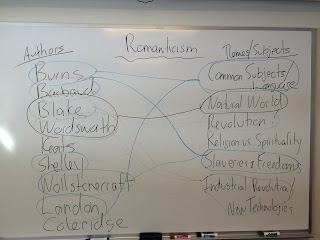 Romanticism
Authors
Burns
Barbauld
Blake
Wordswarth
Keats
Shelley
Wollstonecraft
Landon
Coleridge
Themes/Subjects
Common Subjects/
Language
Natural World
Revolution
Religion vs Spirituality
Slaveness Freedoms
Industrial Revolution/
New Technologies